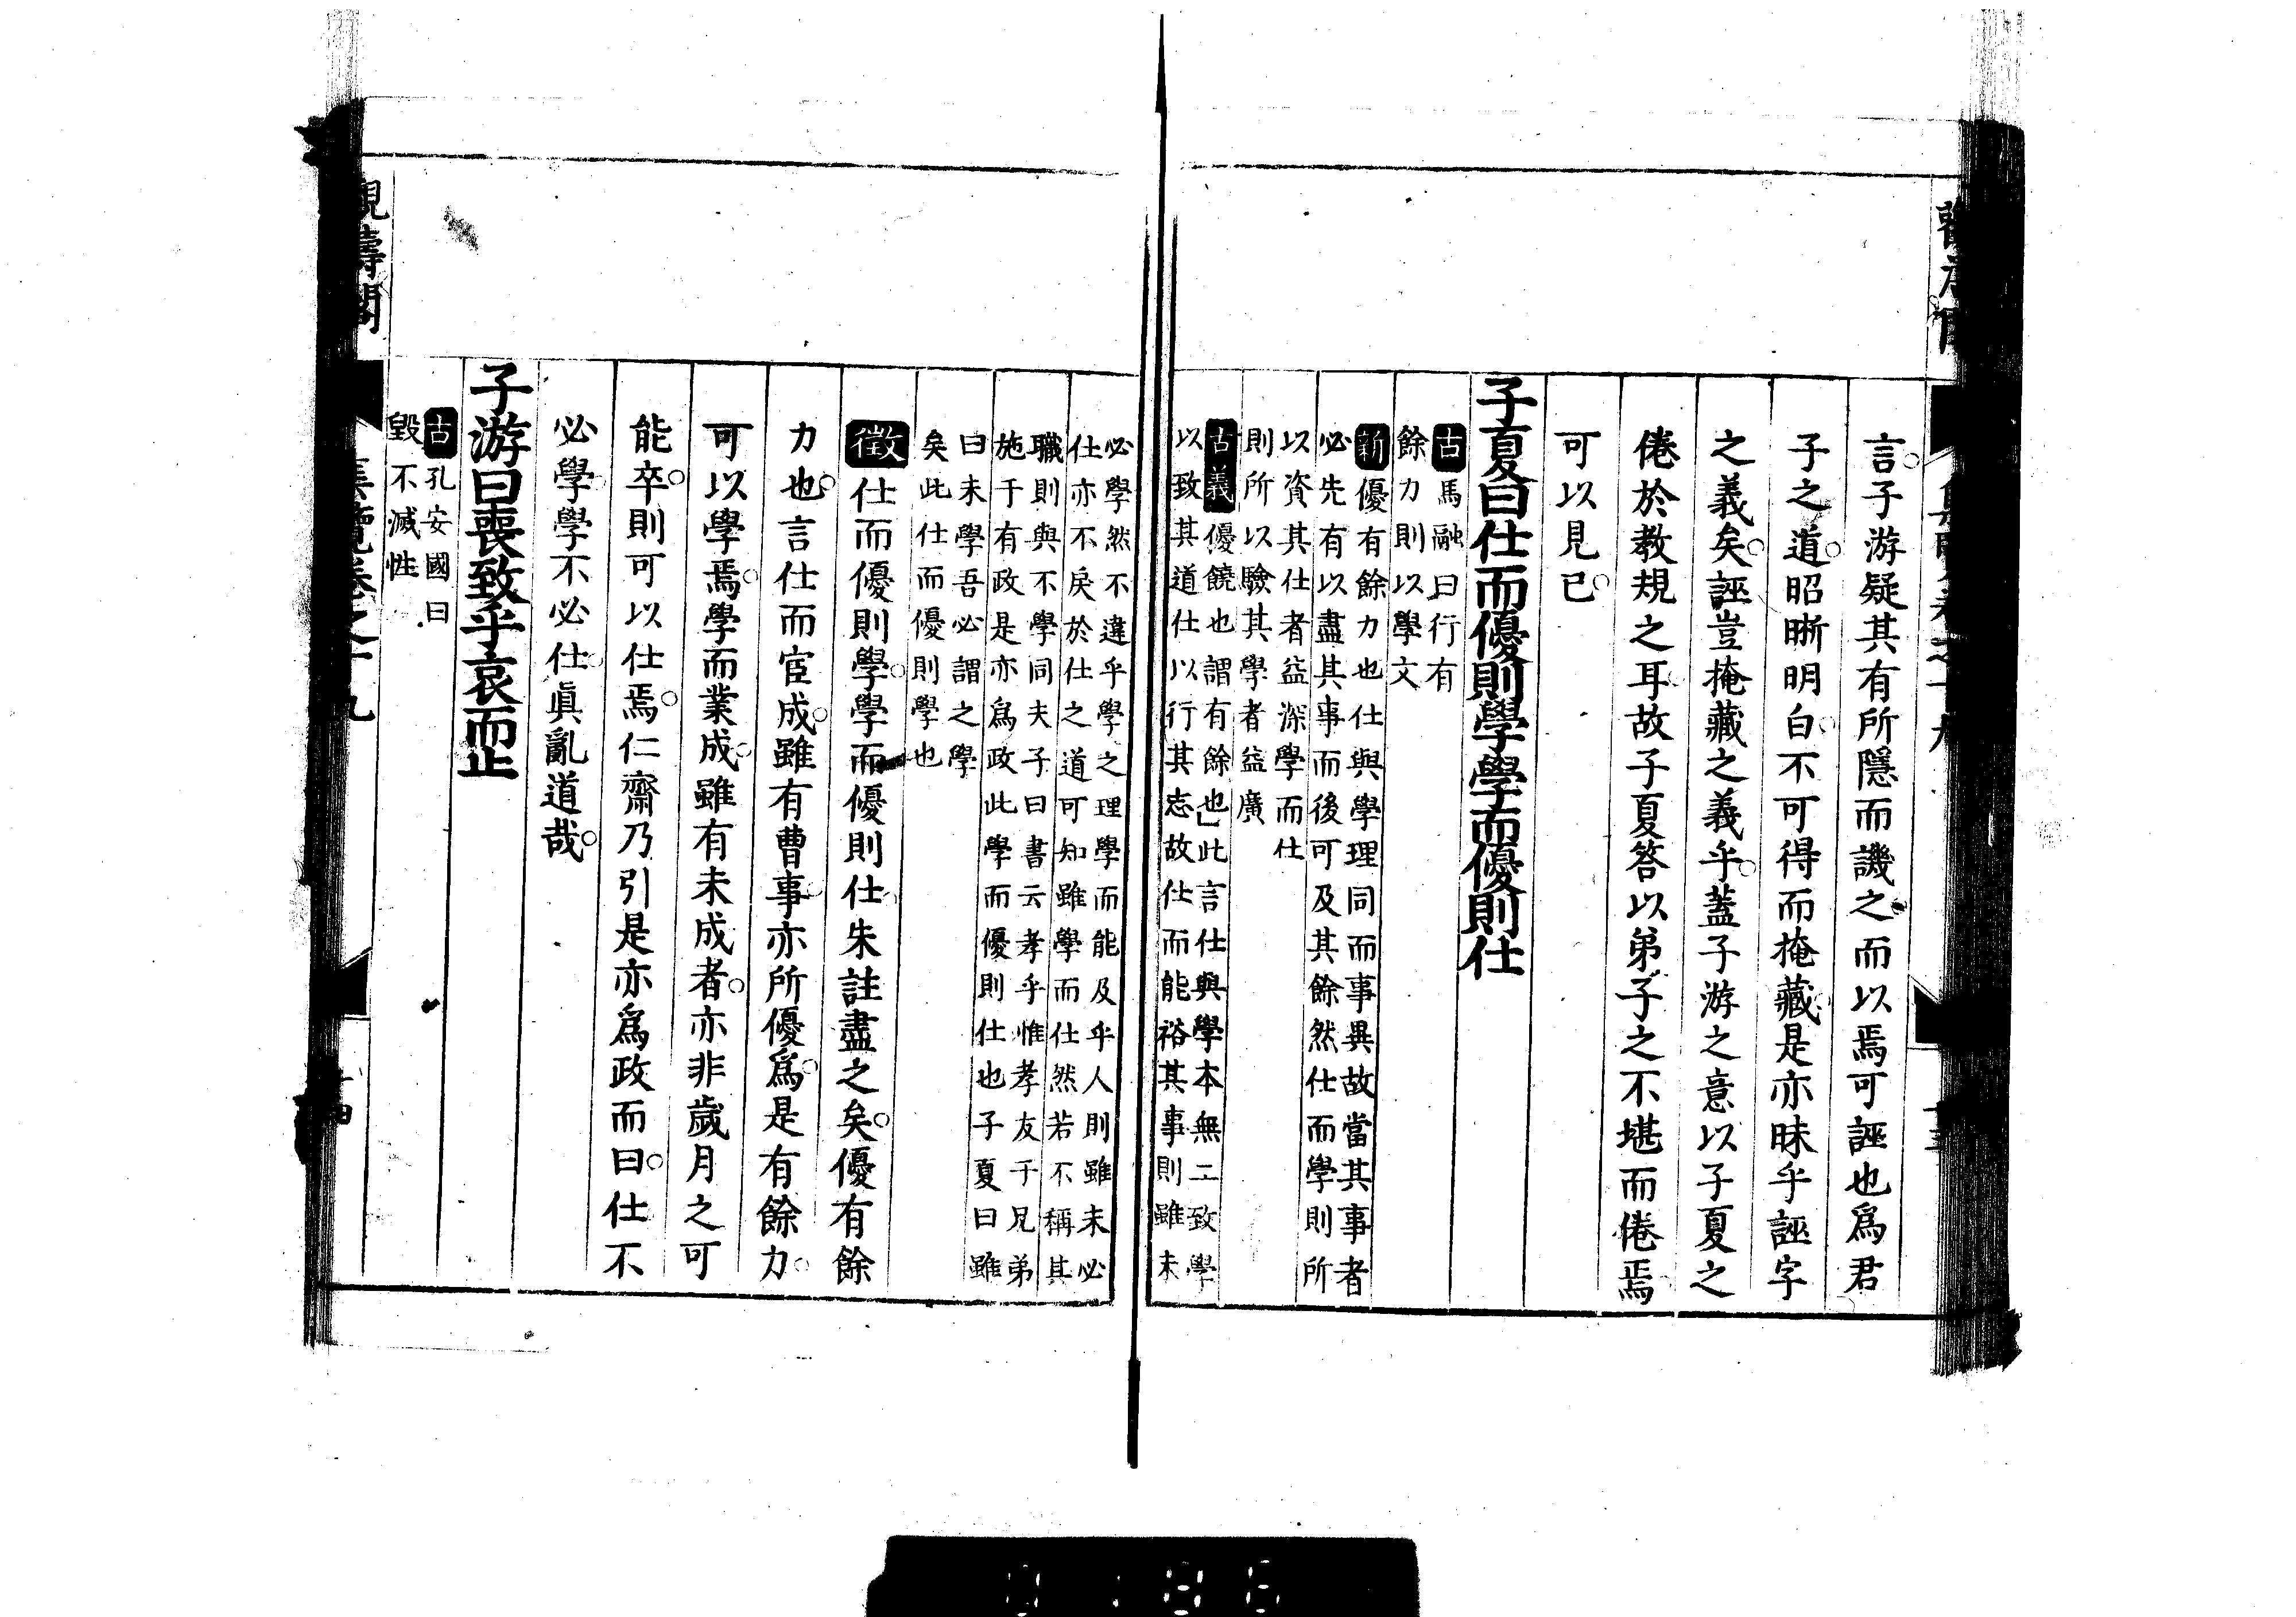 言子游疑其有所隱而譏之而以焉可誣也爲君
子之道昭晰明白不可得而掩藏是亦昧乎誣字
之義矣誣豈掩藏之義乎蓋子游之意以子夏之
倦於教規之耳故子夏答以弟子之不堪而倦焉
可以見已
子夏曰仕而優則學學而優則仕
古馬融曰行有
餘力則以學文
新優有餘力也仕與學理同而事異故當其事者
必先有以盡其事而後可及其餘然仕而學則所
以資其仕者益深學而仕
則所以驗其學者益廣
古義優饒也謂有餘也此言仕與學本無二致學
以致其道仕以行其志故仕而能裕其事則雖未
必學然不違乎學之理學而能及乎人則雖未必
仕亦不戾於仕之道可知雖學而仕然若不稱其
職則與不學同夫子曰書云孝乎惟孝友于兄弟
施于有政是亦爲政此學而優則仕也子夏曰雖
曰未學吾必謂之學
矣此仕而優則學也
徵仕而優則學學而優則仕朱註盡之矣優有餘
力也言仕而宦成雖有曹事亦所優爲是有餘力
可以學焉學而業成雖有未成者亦非歲月之可
能卒則可以仕焉仁齋乃引是亦爲政而曰仕不
必學學不必仕眞亂道哉
子游曰喪致乎哀而止
古孔安國曰
毀不滅性
觀濤閣
覽卷之十九